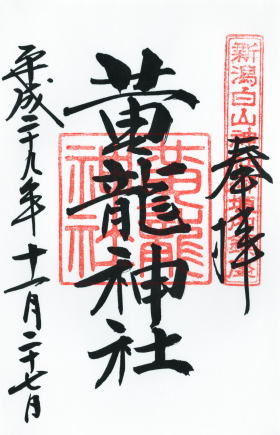 奉拝
新潟白山神
黄龍神社
黄龍神社
平成二十九年十一月二十七日